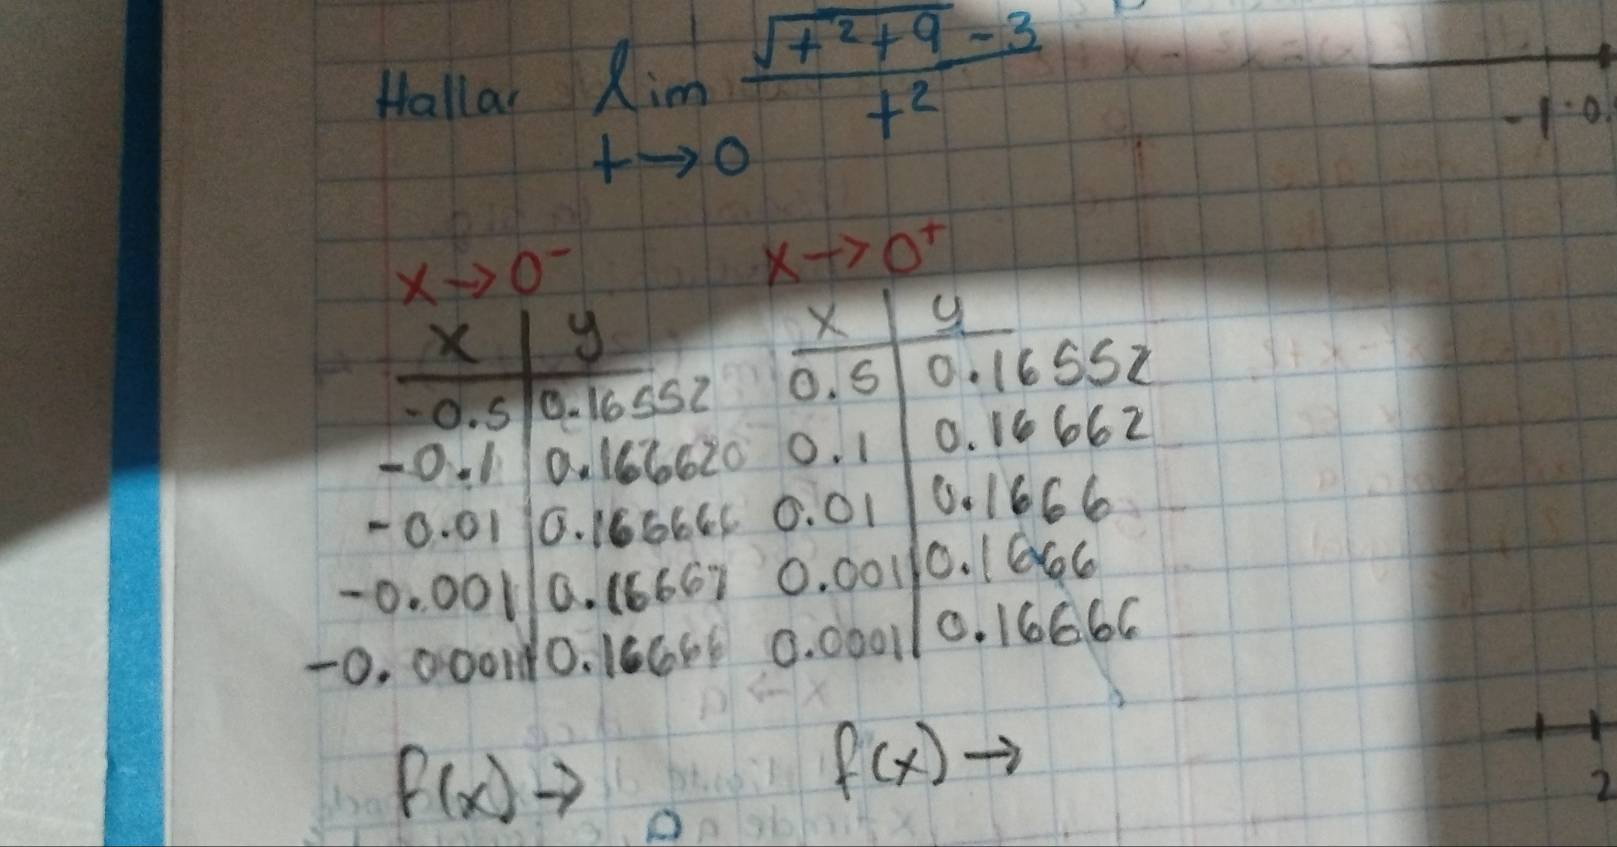 Hallar lim √t²+9 - 3
t²
t→0
x→0⁻ x→0⁺
x y x y
-0.5 0.16552 0.5 0.16552
-0.1 0.166620 0.1 0.16662
-0.01 0.166666 0.01 0.1666
-0.001 0.16667 0.001 0.1666
-0.0001 0.16666 0.0001 0.16666
f(x)→ f(x)→
-1 -0.
2